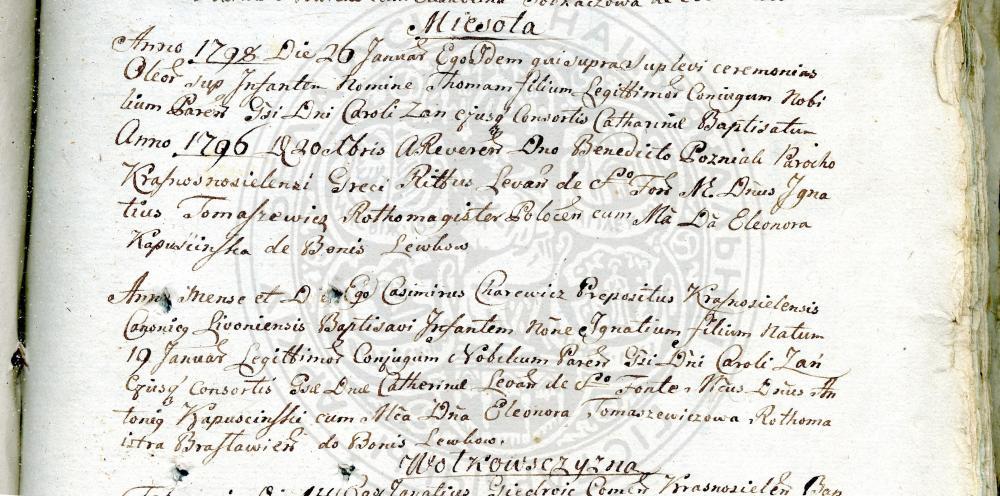 Miesota
Anno 1798 Die 26 Januar Ego Idem qui supra suplevi ceremonias
Oleor sup Infantem Nomine Thomam filium Legittimor Coniugum Nobi
lium Paren Gsi Dni Caroli Zan ejusq Consortis Catharinæ Baptisatum
Anno 1796 20 Xbris A Reveren Dno Benedicto Pozniak Parocho
Krasnosielenzi Greci Rittus Levan de So Fon M. Dnus Igna
tius Tomaszewicz Rothomagister Polocen cum Ma Da Eleonora
Kapuścinska de Bonis Lewkow
Anno Mense et Die Ego Casimirus Charewicz Prepositus Krasnosielensis
Canonicq Livoniensis Baptisavi Infantem Nõne Ignatium filium Natum
19 Januar Legittimor Conjugum Nobilium Paren Gsi Dni Caroli Zan
Ejusq Consortis Gsæ Dnæ Catherinæ Levan de So Fonte Mcus Dnus An
toniq Kapuscinski cum Mca Dna Eleonora Tomaszewiczowa Rothoma
istra Brasławien de Bonis Lewkow.
Wolkowsczyzna
Ignatius Giedroic Comen Krasnosielen Bap